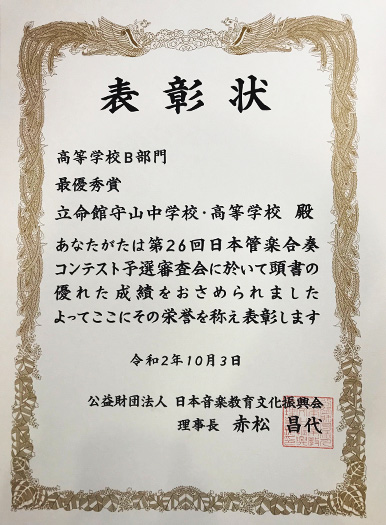 表彰状
高等学校B部門
最優秀賞
立命館守山中学校・高等学校 殿
あなたがたは第26回日本管楽合奏
コンテスト予選審査会に於いて頭書の
優れた成績をおさめられました
よってここにその栄誉を称え表彰します
令和2年10月3日
公益財団法人 日本音楽教育文化振興会
理事長 赤松 昌代